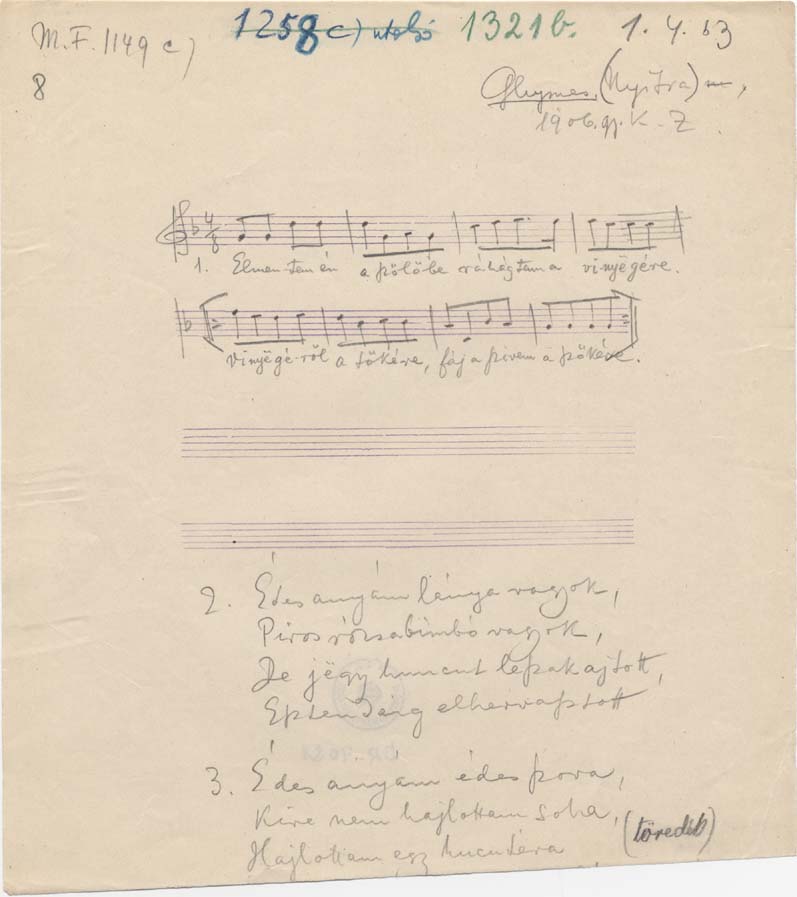 M.F. 1149 c)
1258 c) utolsó 1321b. 1.4.53
8
Ghymes, (Nyitra) m,
1906. gy. K. Z.
4/8
1. Elmen-tem én a þőlőbe ráhágtam a vinyëgére.
vinyëgé-ről a tőkére, fáj a þívem a þőkére.
2. Édes anyám lánya vagyok,
Piros rózsabimbó vagyok,
De jëgy huncut leþakajtott,
Eþtendeig elhervaþtott
3. Édes anyám édes þova,
Kire nem hajlottam soha,
Hajlottam egy (töredék)